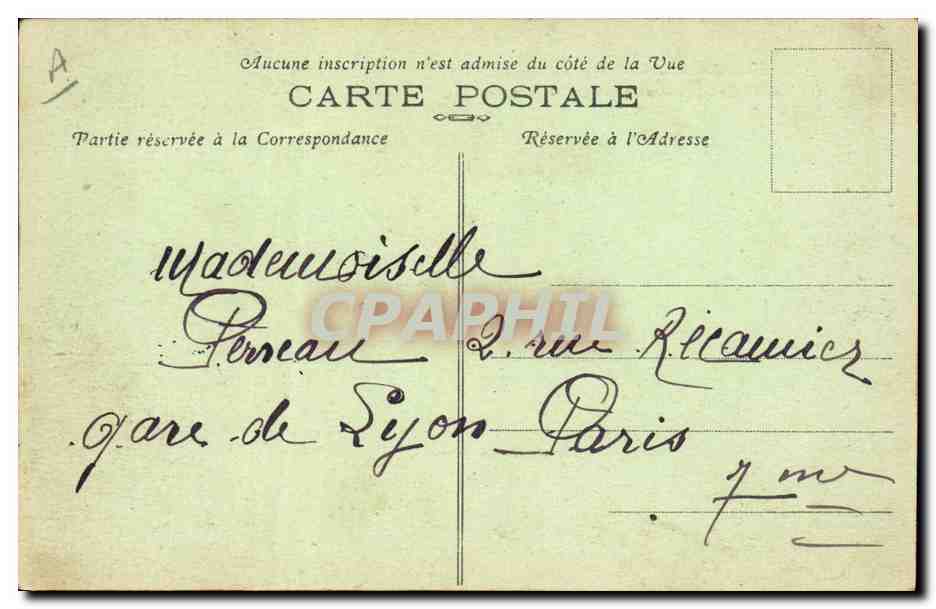 A
Aucune inscription n'est admise du côté de la Vue
CARTE POSTALE
Partie réservée à la Correspondance
Réservée à l'Adresse
Mademoiselle
CPAPHIL
Perreau 2. rue Récamier
gare de Lyon Paris
7 me